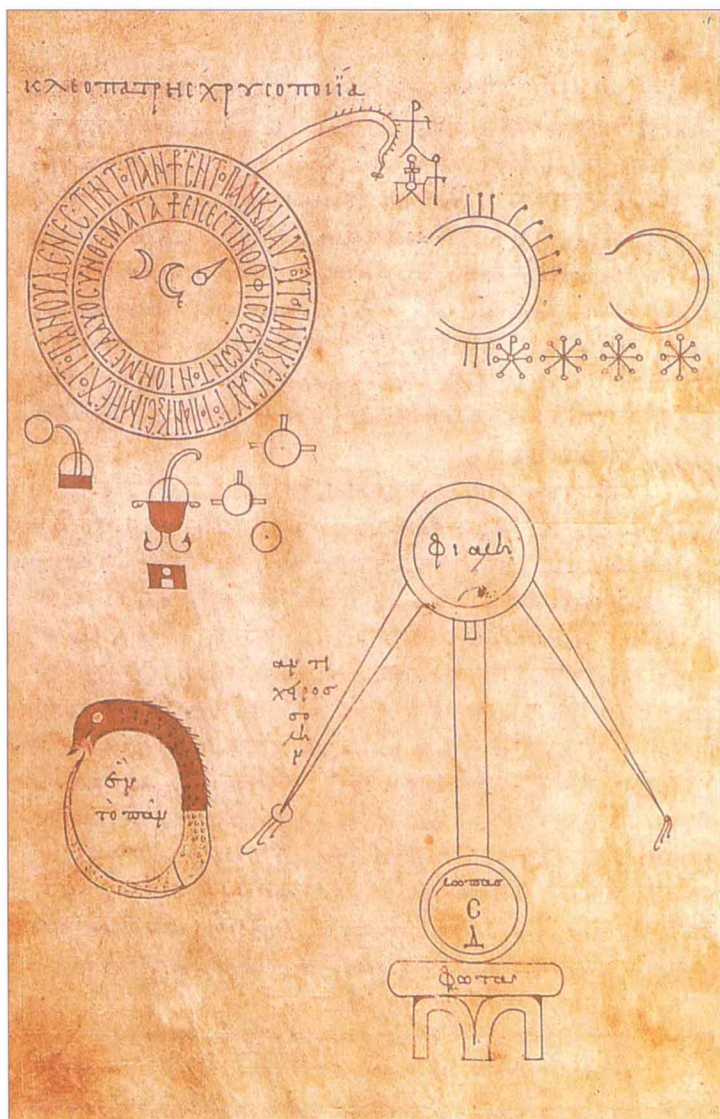 κλεοπατρης χρυσοποιΐα
ΕΝ ΤΟ ΠΑΝ Κ ΔΙ ΑΥΤΟΥ ΤΟ ΠΑΝ Κ ΕΙC ΑΥΤΟ ΤΟ ΠΑΝ Κ ΕΙ ΜΗ ΕΧΟΙ ΤΟ ΠΑΝ ΟΥΔΕΝ ΕCΤΙΝ ΤΟ ΠΑΝ
ΕΙC ΕCΤΙΝ Ο ΟΦΙC Ο ΕΧΩΝ ΤΟΝ ΙΟΝ ΜΕΤΑ ΔΥΟ CΥΝΘΕΜΑΤΑ
φιαλη
αντι
χειρος
σω
λη
ν
ἓν
τὸ πᾶν
λωπας
C
Δ
φωτα